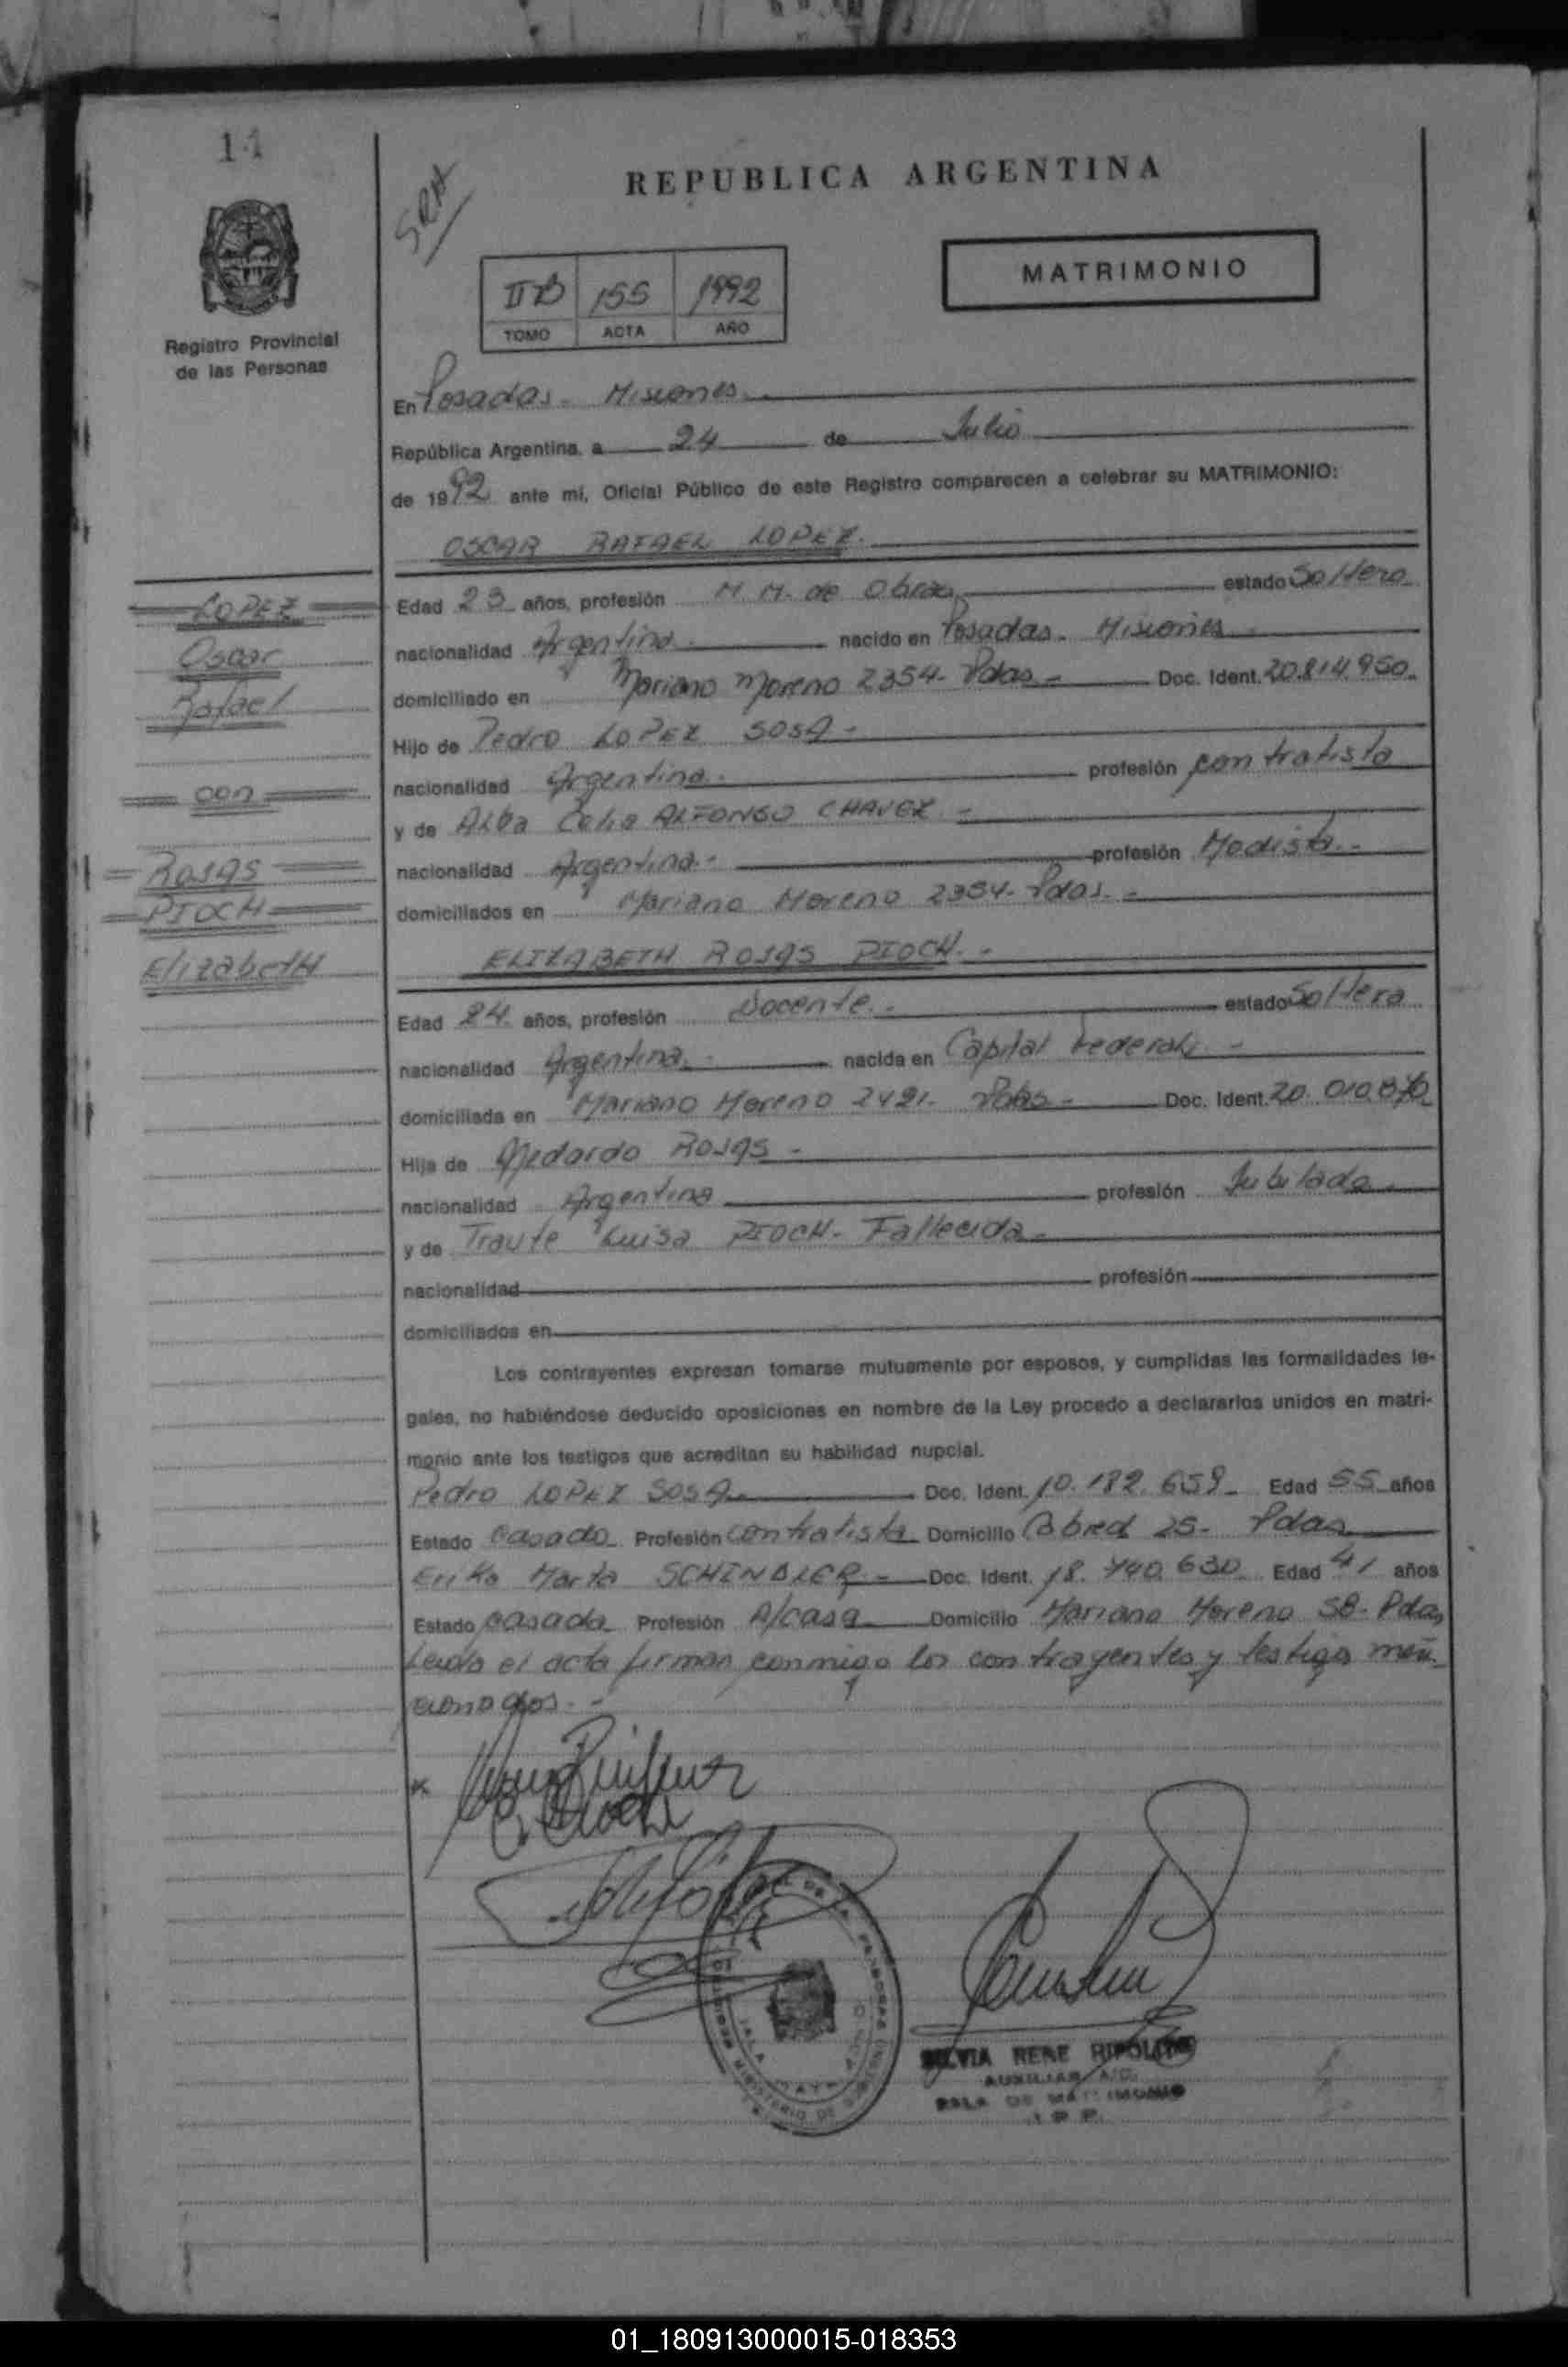 14
SRH
REPUBLICA ARGENTINA
MATRIMONIO
II B 155 1992
TOMO ACTA AÑO
Registro Provincial
de las Personas
En Posadas - Misiones
República Argentina, a 24 de Julio
de 1992 ante mí, Oficial Público de este Registro comparecen a celebrar su MATRIMONIO:
OSCAR RAFAEL LOPEZ.
LOPEZ
Oscar
Rafael
con
Rojas
PIOCH
Elizabeth
Edad 23 años, profesión M. M. de Obras estado Soltero
nacionalidad Argentina. nacido en Posadas - Misiones
domiciliado en Mariano Moreno 2354 - Pdas - Doc. Ident. 20.814.950.
Hijo de Pedro LOPEZ SOSA -
nacionalidad Argentina. profesión contratista
y de Alba Celia ALFONSO CHAVEZ. -
nacionalidad Argentina.- profesión Modista.-
domiciliados en Mariano Moreno 2354 - Pdas. -
ELIZABETH ROJAS PIOCH.-
Edad 24 años, profesión Docente.- estado Soltera
nacionalidad Argentina.- nacida en Capital Federal -
domiciliada en Mariano Moreno 2421 - Pdas - Doc. Ident. 20.010.870
Hija de Medardo ROJAS -
nacionalidad Argentina profesión Jubilado
y de Traute Luisa PIOCH - Fallecida -
nacionalidad profesión
domiciliados en
Los contrayentes expresan tomarse mutuamente por esposos, y cumplidas las formalidades le-
gales, no habiéndose deducido oposiciones en nombre de la Ley procedo a declararlos unidos en matri-
monio ante los testigos que acreditan su habilidad nupcial.
Pedro LOPEZ SOSA Doc. Ident. 10.182.659 - Edad 55 años
Estado Casado Profesión Contratista Domicilio Cabred 25 - Pdas
Erika Marta SCHINDLER - Doc. Ident. 18.740.630 Edad 41 años
Estado casada Profesión A/casa Domicilio Mariano Moreno 58 - Pdas
Leida el acta firman conmigo los contrayentes y testigos men-
cionados. -
SILVIA RENE RIPOLI
AUXILIAR
SALA DE MATRIMONIO
01_180913000015-018353